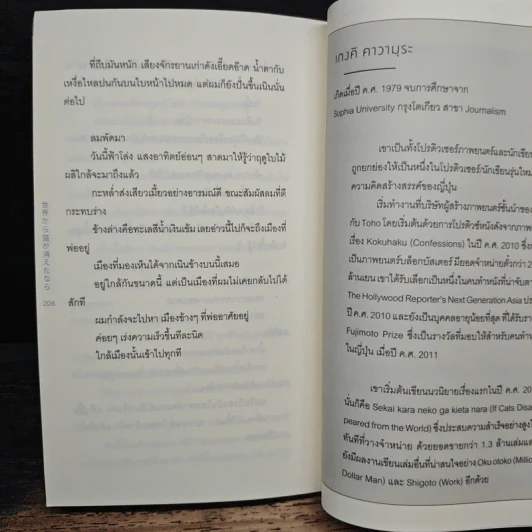 ที่ถีบมันหนัก เสียงจักรยานเก่าดังเอี๊ยดอ๊าด น้ำตากับ
เหงื่อไหลปนกันบนใบหน้าไปหมด แต่ผมก็ยังปั่นขึ้นเนินนั่น
ต่อไป
ลมพัดมา
วันนี้ฟ้าโล่ง แสงอาทิตย์อ่อนๆ สาดมาให้รู้ว่าฤดูใบไม้
ผลิใกล้จะมาถึงแล้ว
กะหล่ำส่งเสียงเมี้ยวอย่างอารมณ์ดี ขณะสัมผัสลมที่ตี
กระทบร่าง
ข้างล่างคือทะเลสีน้ำเงินเข้ม เลยอ่าวนี้ไปก็จะถึงเมืองที่
พ่ออยู่
เมืองที่มองเห็นได้จากเนินข้างบนนี้เสมอ
อยู่ใกล้กันขนาดนี้ แต่เป็นเมืองที่ผมไม่เคยกลับไปได้
สักที
ผมกำลังจะไปหา เมืองข้างๆ ที่พ่ออาศัยอยู่
ค่อยๆ เร่งความเร็วขึ้นทีละนิด
ใกล้เมืองนั้นเข้าไปทุกที
世界から猫が消えたなら
206
เกงคิ คาวามุระ
เกิดเมื่อปี ค.ศ. 1979 จบการศึกษาจาก
Sophia University กรุงโตเกียว สาขา Journalism
เขาเป็นทั้งโปรดิวเซอร์ภาพยนตร์และนักเขียน
ถูกยกย่องให้เป็นหนึ่งในโปรดิวเซอร์นักเขียนรุ่นใหม่
ความคิดสร้างสรรค์ของญี่ปุ่น
เริ่มทำงานที่บริษัทผู้สร้างภาพยนตร์ชั้นนำของ
กับ Toho โดยเริ่มต้นด้วยการโปรดิวซ์หนังดังจากภาพ
เรื่อง Kokuhaku (Confessions) ในปี ค.ศ. 2010 ซึ่ง
เป็นภาพยนตร์บล็อกบัสเตอร์ มียอดจำหน่ายตั๋วกว่า 2
ล้านเยน เขาได้รับเลือกเป็นหนึ่งในคนทำหนังที่น่าจับตา
The Hollywood Reporter's Next Generation Asia ประ
ปี ค.ศ. 2010 และยังเป็นบุคคลอายุน้อยที่สุด ที่ได้รับรา
Fujimoto Prize ซึ่งเป็นรางวัลที่มอบให้สำหรับคนทำ
ในญี่ปุ่น เมื่อปี ค.ศ. 2011
เขาเริ่มต้นเขียนนวนิยายเรื่องแรกในปี ค.ศ. 20
นั่นก็คือ Sekai kara neko ga kieta nara (If Cats Disap
peared from the World) ซึ่งประสบความสำเร็จอย่างสูงใ
ทันทีที่วางจำหน่าย ด้วยยอดขายกว่า 1.3 ล้านเล่ม
ยังมีผลงานเขียนเล่มอื่นที่น่าสนใจอย่าง Oku otoko (Millio
Dollar Man) และ Shigoto (Work) อีกด้วย